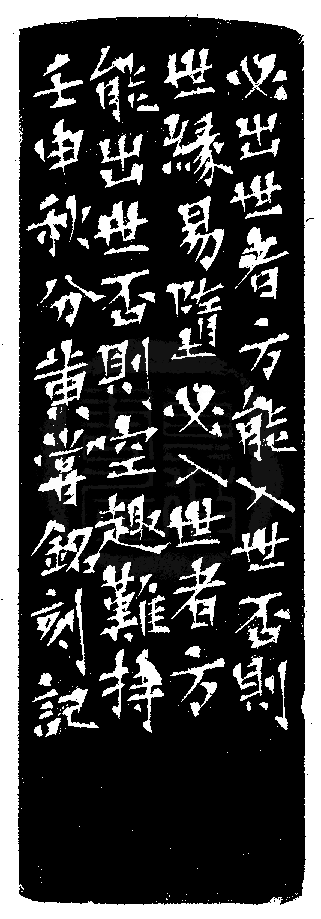 必出世者方能入世否則
世緣易墮必入世者方
能出世否則空趣難持
壬申秋分黃嘗銘刻記